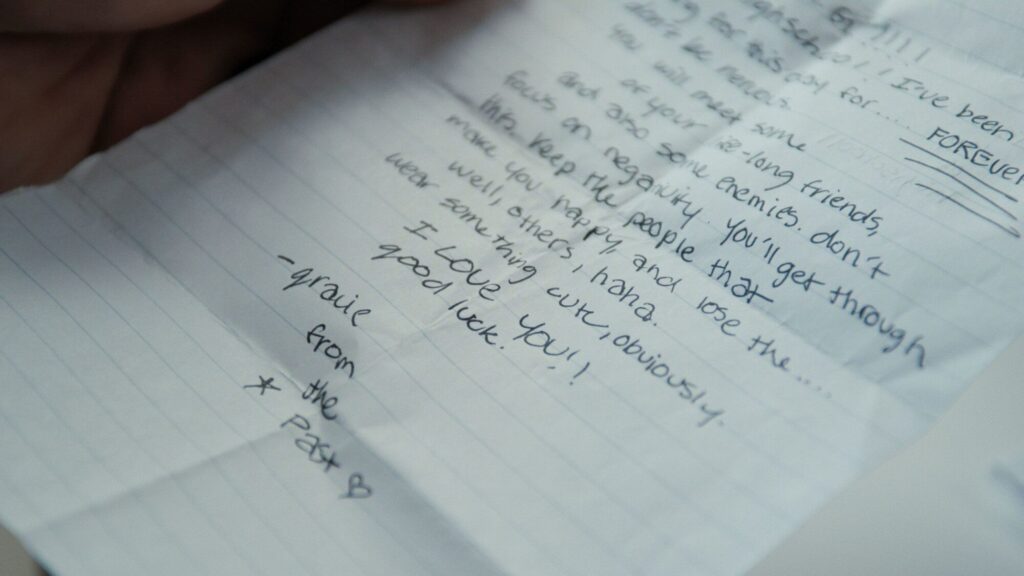 I've been
for this day for.... FOREVER
don't be nervous
you will meet some
of your life-long friends,
and also some enemies. don't
focus on negativity. You'll get through
this. keep the people that
make you happy, and lose the....
well, others, haha.
wear something cute, obviously.
I LOVE YOU!!
good luck.
-gracie
from
the
* past ♡